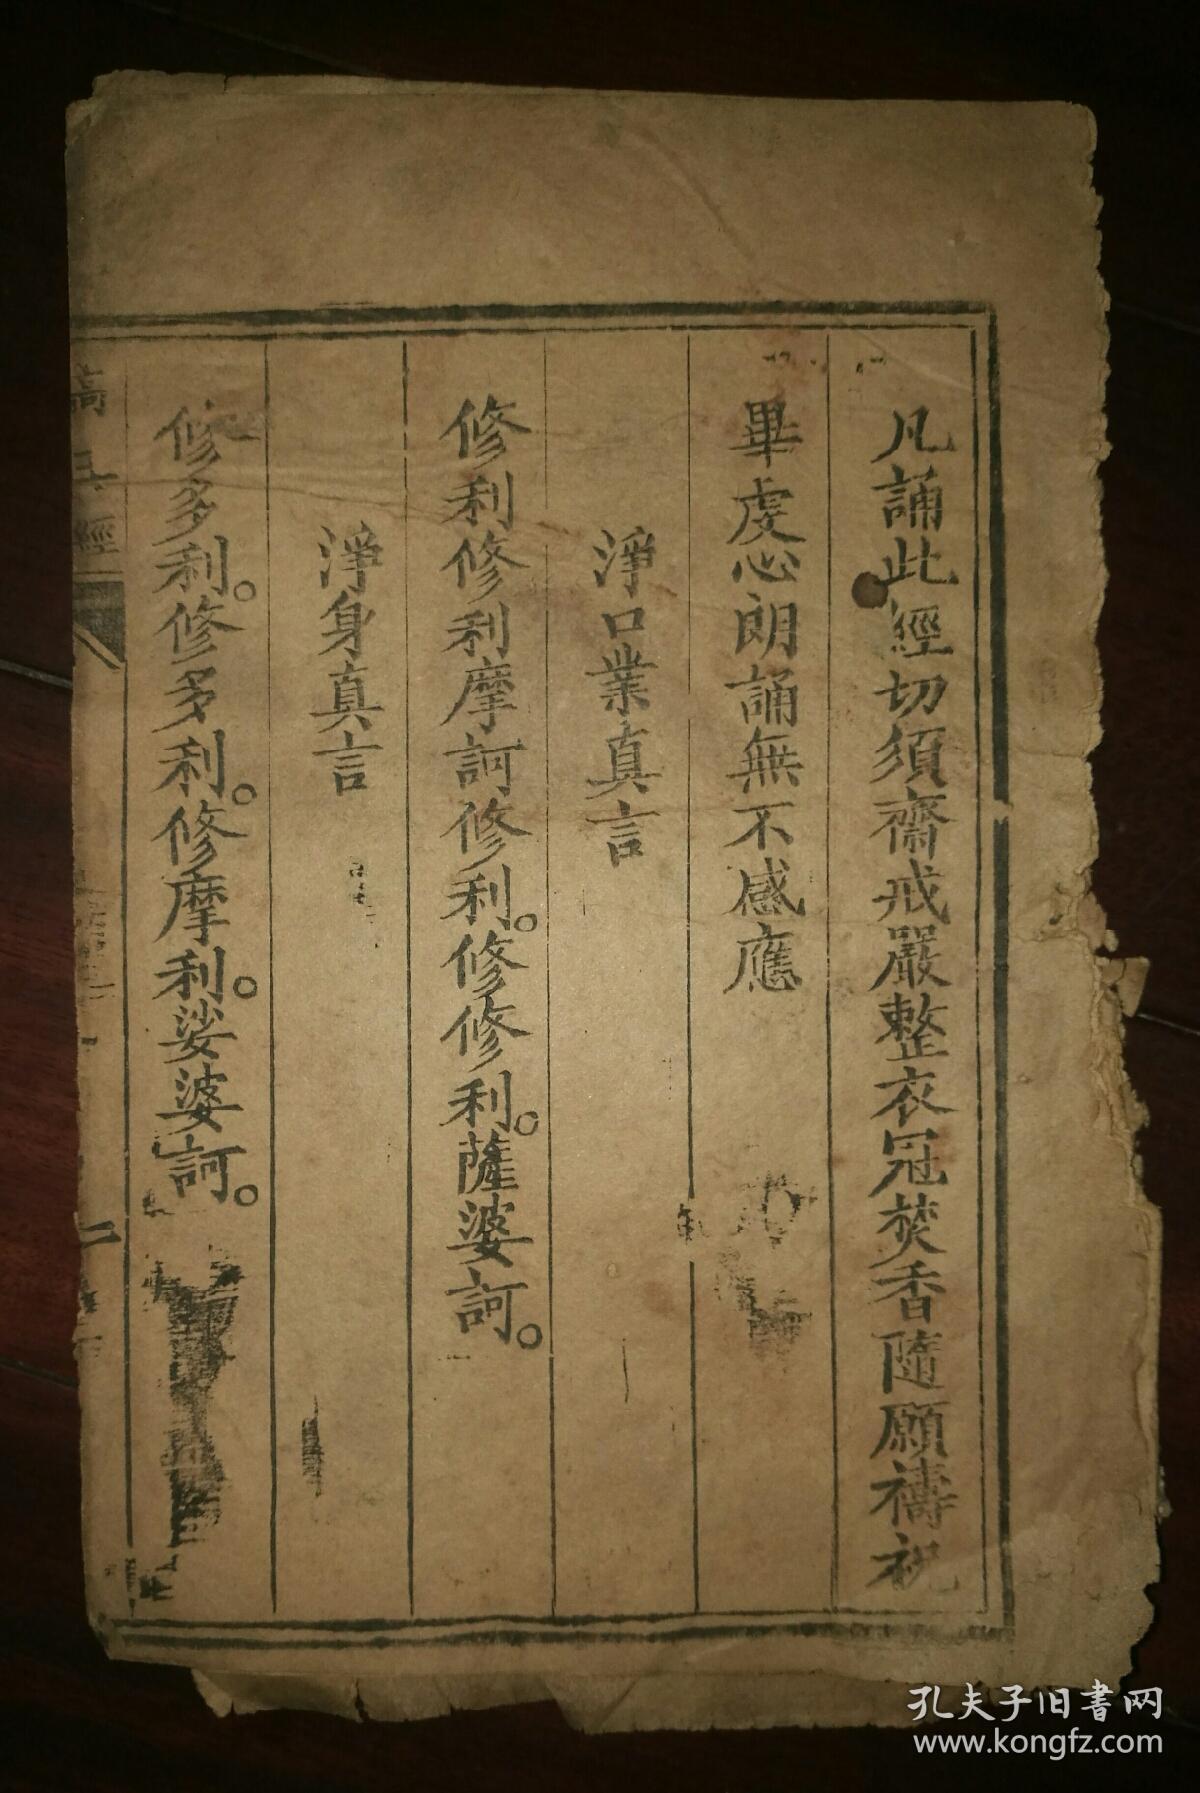 凡誦此經切須齋戒嚴整衣冠焚香隨願禱祝
畢虔心朗誦無不感應
淨口業真言
修利修利摩訶修利。修修利。薩婆訶。
淨身真言
修多利。修多利。修摩利。娑婆訶。
高王經
二
孔夫子旧書网
www.kongfz.com